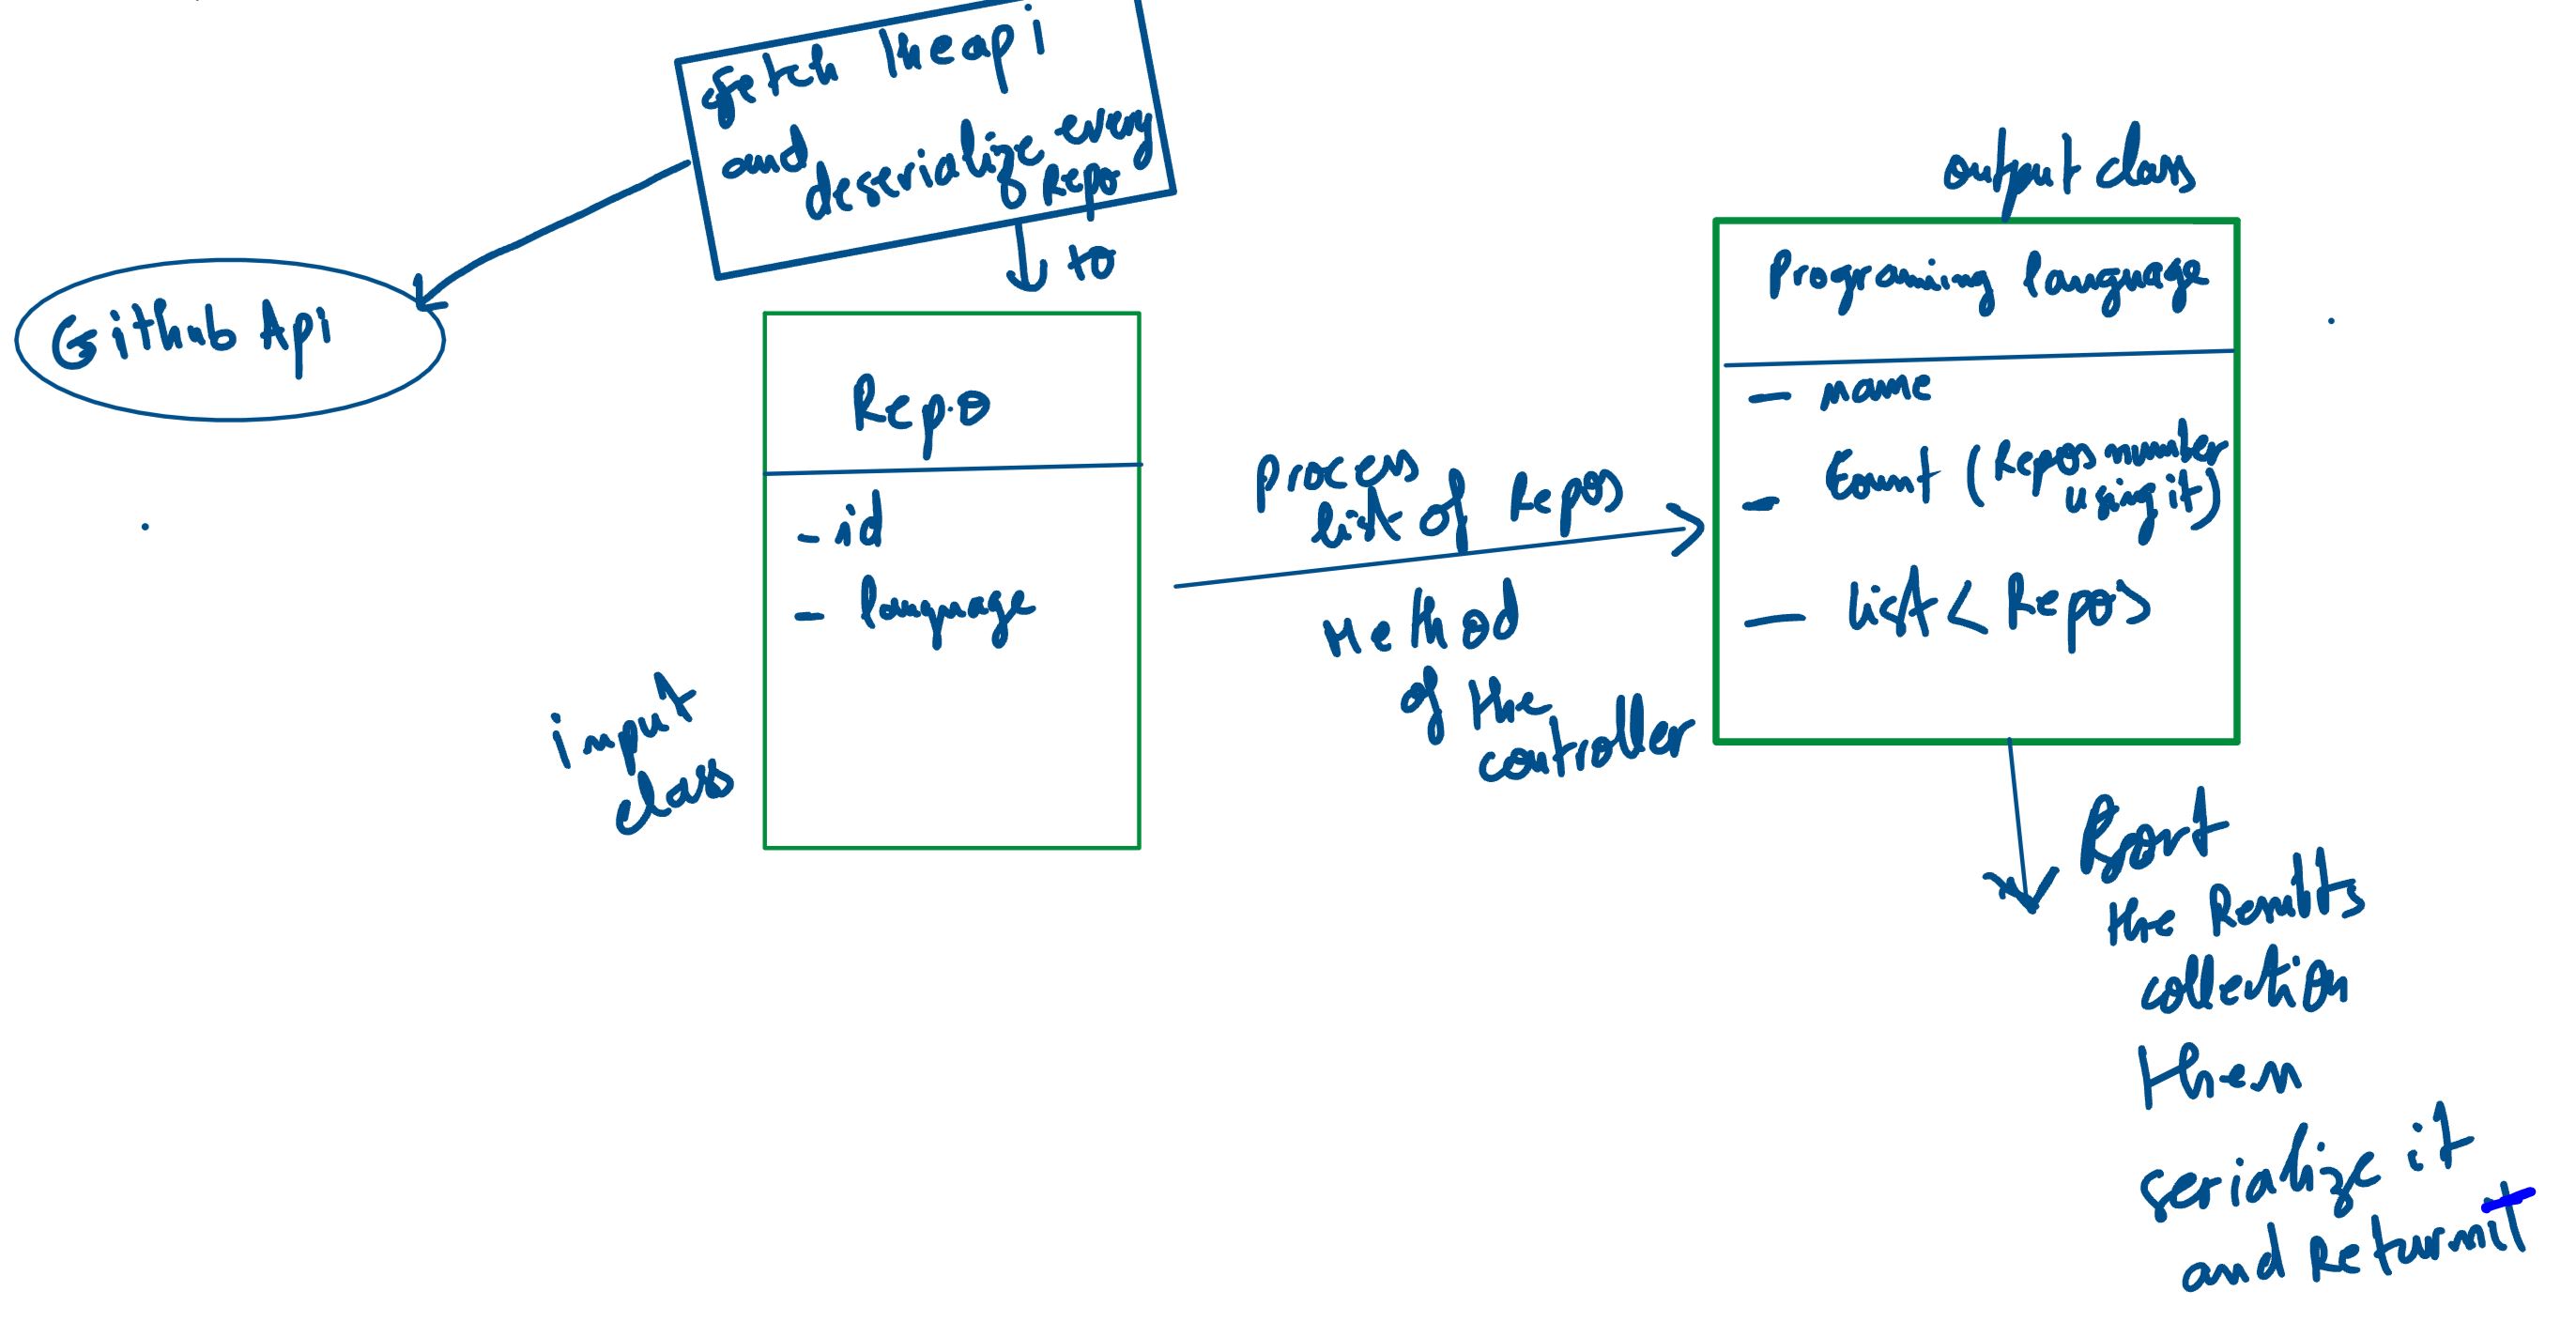 fetch the api
and deserialize every
Repo
to
Github Api
Repo
- id
- language
input
class
Process
list of Repos
Method
of the
controller
output class
Programing language
- name
- Count (Repos number
using it)
- list < Repos
Sort
the Results
collection
then
serialize it
and Return it